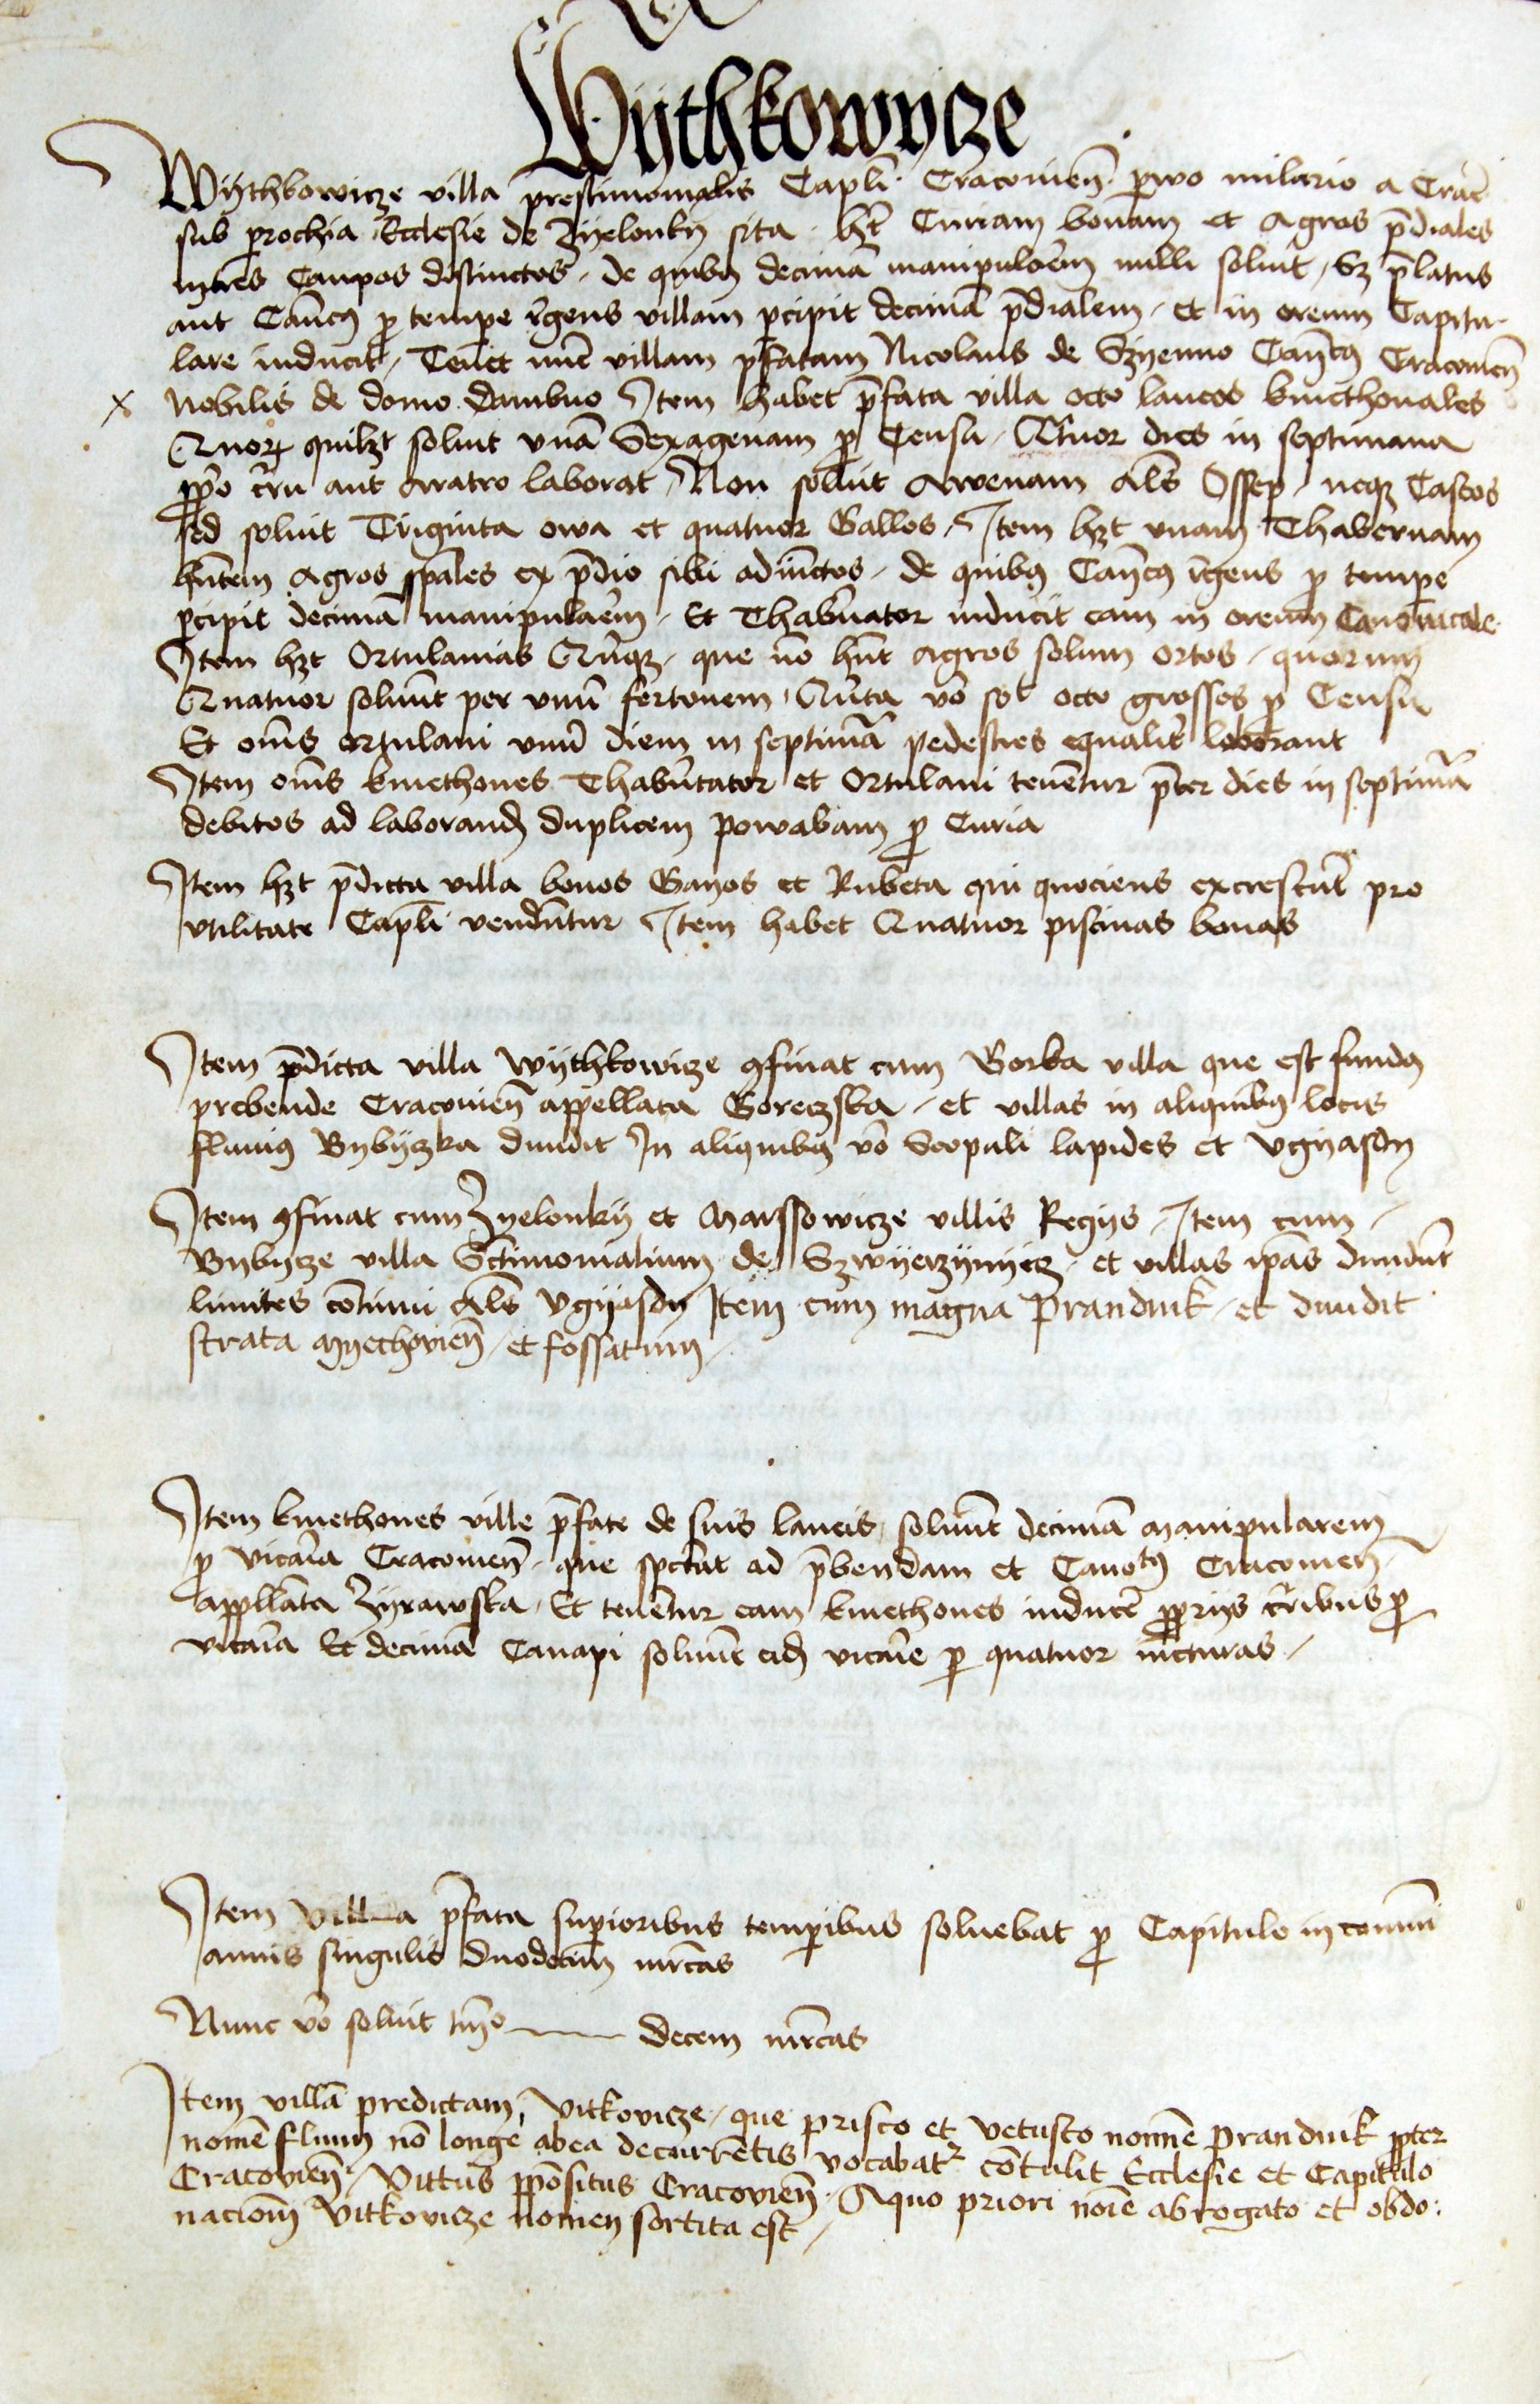 Wÿthkowycze
Wÿthkowicze villa prestimonialis Capli Cracouien̄ paruo miliario a Crac̄
sub parochia Ecclesie de Zyelonky sita hēt Curiam bonam et Agros p̄diales
in tres Campos distinctos, de quibus decimā manipularem nulli soluit, Sz p̄latus
aut Canc̄us p tempe r̄gens villam pcipit decimā p̄dialem, et in oreum Capitu-
lare inducit, Tenet nūc villam p̄fatam Nicolaus de Szyenno Canc̄us Cracouien̄
Nobilis de domo dambno Item habet p̄fata villa octo laneos kmethonales
Quorum quilzt soluit vnā Sexagenam p Censu, Qtuor dies in septimana
pp̄o curru aut Aratro laborat, Non soluit Avenam als Ossep, neqz Caseos
sed soluit Triginta owa et quatuor Gallos, Item hzt vnam Thabernam
hn̄tem Agros spāles ex p̄dio sibi adiūctos, de quibus Canc̄us r̄gens p tempe
pcipit decimā manipularem, Et Thabn̄ator inducit eam in oreum Canonicale
Item hzt Ortulanias Qn̄qz, que nō hn̄t Agros solum ortos, quorum
Quatuor soluūt per vnū fertonem, Qūta vo sol octo grossos p Censu
Et om̄s ortulani vnū diem in septimā pedestres equalit̄ laborant
Item om̄s kmethones Thabn̄ator et Ortulani tenentur p̄ter dies in septimā
debitos ad laborand duplicem powabam p Curia
Item hzt p̄dicta villa bonos Gayos et Rubeta qui quociens excrescūt pro
vtilitate Capli vendūtur Item habet Quatuor piscinas bonas
Item p̄dicta villa Wÿthkowicze 9finat cum Gorka villa que est fundus
prebende Cracouien̄ appellata Goreczska, et villas in aliquibus locis
fluuius Bybÿczka diuidit In aliquibus vo Scopuli lapides et Vgyasdy
Item 9finat cum Zyelonkÿ et Marssowicze villis Regÿs, Item cum
Bybÿcze villa Sctimonialium de Szwyerzÿnyecz, et villas ip̄as diuidūt
limites cōtinui Als Vgÿasdy Item cum magna Prandnik, et diuidit
strata Myechovien̄, et fossatum
Item kmethones ville p̄fate de suis laneis soluūt decimā manipularem
p vicaīa Cracouien̄, que spectat ad p̄bendam et Cano͞tum Cracouien̄
appellata Zÿrawska, Et tenentur eam kmethones inducē pprÿs curribus p
vicaīa Et decimā Canapi soluūt eid vicaīe p quatuor iūcturas
Item villa p̄fata superioribus temporibus soluebat p Capitulo in comuni
annis singulis duodecim mrcas
Nunc vo soluit tm̄o decem mrcas
Item villā predictam, Vitkovicze, que prisco et vetusto nomīe Prandnik ppter
nomē fluuij nō longe abea decurrētis vocabatr cōtulit Ecclesie et Capitulo
Cracovien̄, Vittus ppositus Cracovien̄, A quo priori noīe abrogato et obdo:
nacionē Vitkovicze nomen sortita est